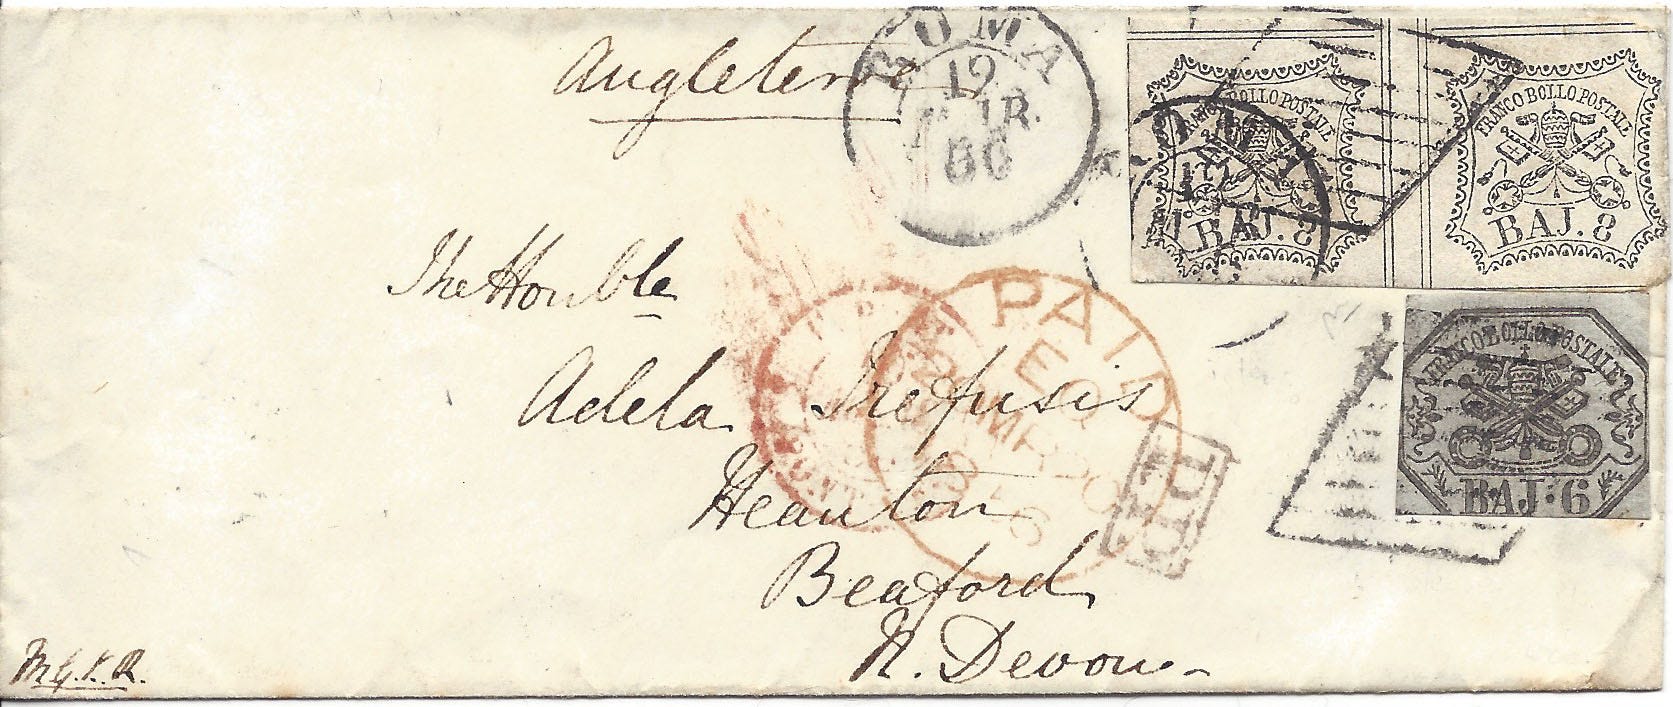 Angleterre
ROMA
19
66
FRANCO BOLLO POSTALE
BAJ. 8
FRANCO BOLLO POSTALE
BAJ. 8
The Honble
PAID
Adela Trefusis
FRANCO BOLLO POSTALE
BAJ: 6
PD
Heanton
Beaford
N. Devon